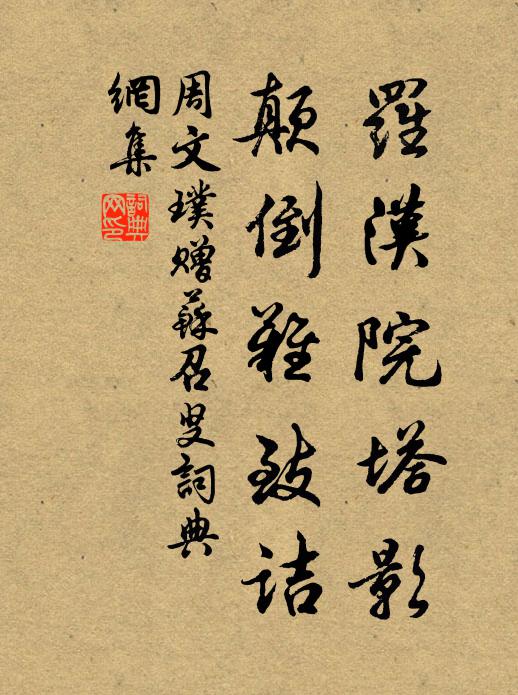 羅漢院塔影
顛倒難致詰
周文璞贈蘇召叟詞典
網集
詞典網印